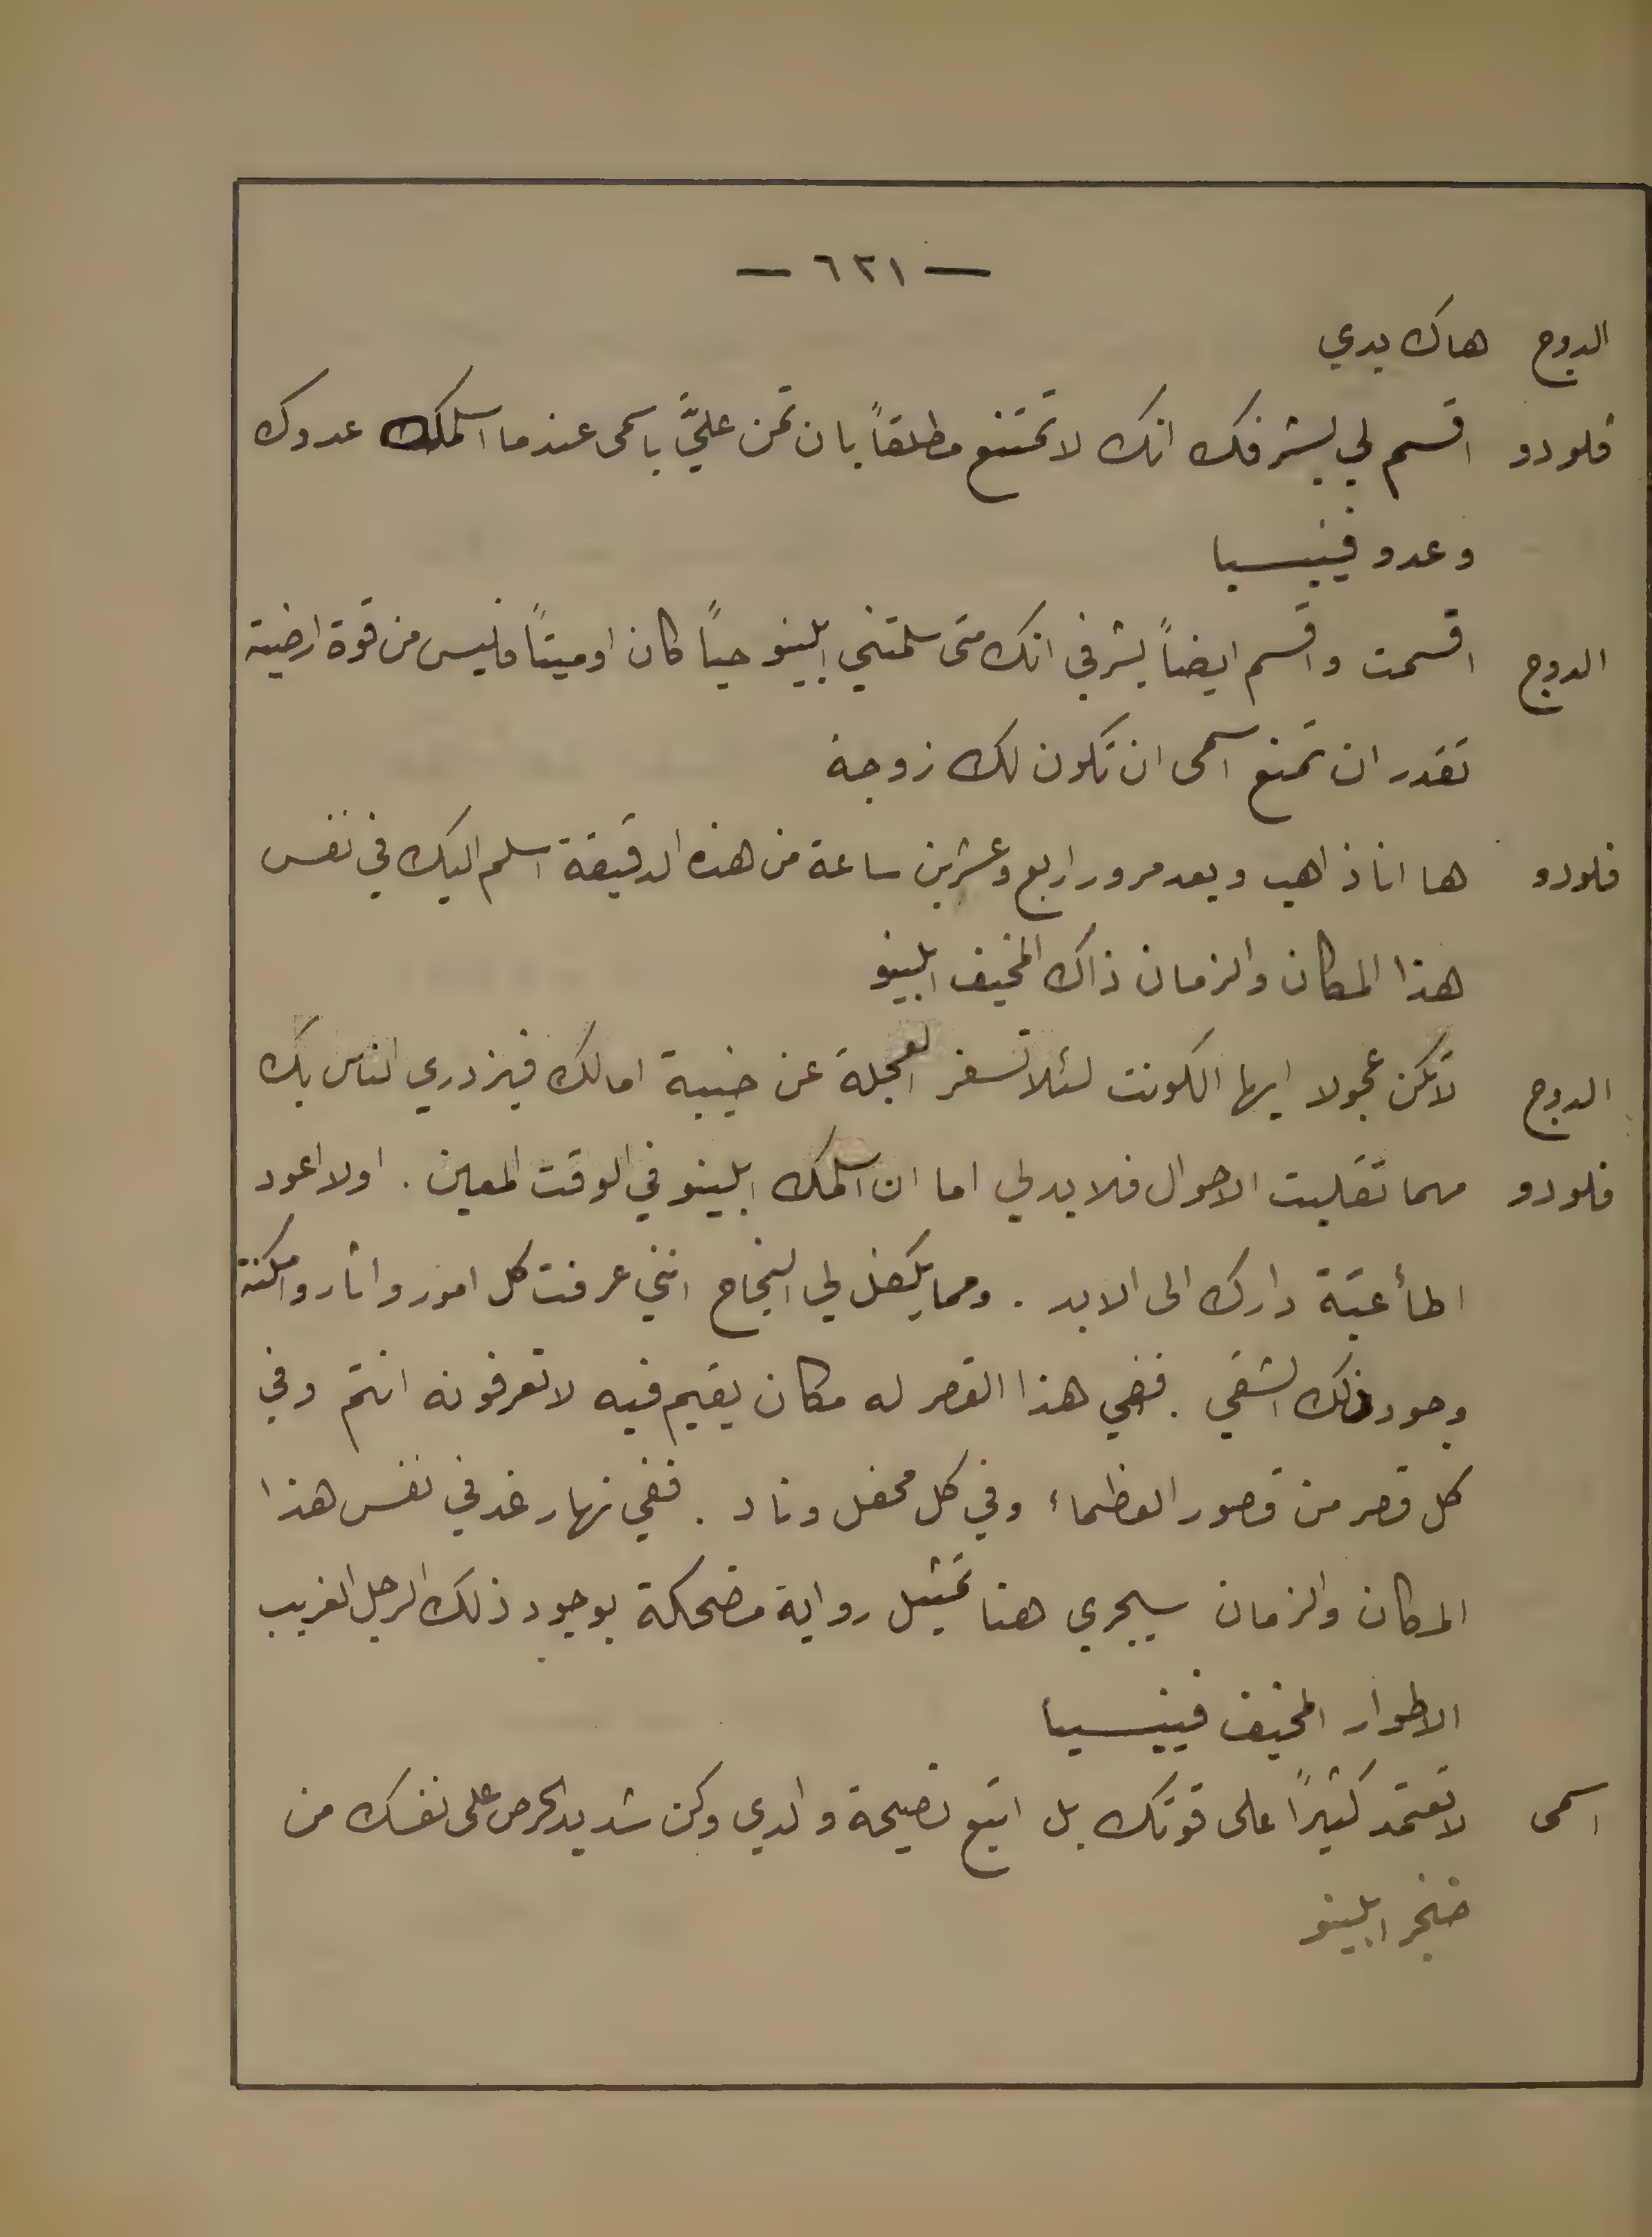 — ٦٢١ —
الدوج هاك يدي
فلودو اقسم لي بشرفك انك لا تمتنع مطلقاً بان تمن عليَّ باسمى عندما اسلمك عدوك
وعدو فينيسيا
الدوج اقسمت واقسم ايضاً بشرفي انك متى سلمتني ابلينو حياً كان او ميتاً فليس من قوة ارضية
تقدر ان تمنع اسمى ان تكون لك زوجة
فلودو ها انا ذاهب وبعد مرور اربع وعشرين ساعة من هذه الدقيقة اسلم اليك في نفس
هذا المكان والزمان ذاك المخيف ابلينو
الدوج لا تكن عجولا ايها الكونت لئلا تسفر العجلة عن خيبة امالك فيزدري الناس بك
فلودو مهما تقلبت الاحوال فلا بد لي اما ان اسلمك ابلينو في الوقت المعين . اولا اعود
اطأ عتبة دارك الى الابد . ومما يكفل لي النجاح انني عرفت كل امور واثار وامكنة
وجود ذلك الشقي . ففي هذا القصر له مكان يقيم فيه لا تعرفونه انتم وفي
كل قصر من قصور العظماء وفي كل محفل وناد . ففي نهار غد في نفس هذا
المكان والزمان سيجري هنا تمثيل رواية مضحكة بوجود ذلك الرجل الغريب
الاطوار المخيف فينيسيا
اسمى لا تعتمد كثيراً على قوتك بل اتبع نصيحة والدي وكن شديد الحرص على نفسك من
خنجر ابلينو